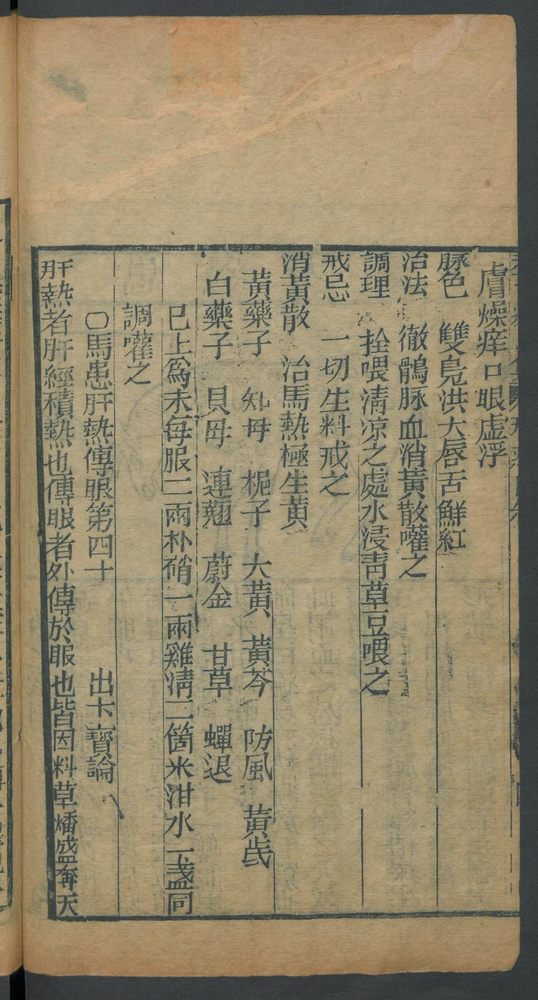 膚燥痒口眼虛浮
脉色　雙鳧洪大唇舌鮮紅
治法　徹鶻脉血消黃散灌之
調理　拴喂清凉之處水浸青草豆喂之
戒忌　一切生料戒之
消黃散　治馬熱極生黃
黃藥子　知母　梔子　大黃　黃芩　防風　黃芪
白藥子　貝母　連翹　蔚金　甘草　蟬退
已上爲末每服二兩朴硝一兩雞清二箇米泔水一盞同
調灌之
〇馬患肝熱傳眼第四十　出卞寶論
肝熱者肝經積熱也傳眼者外傳於眼也皆因料草燔盛奔天